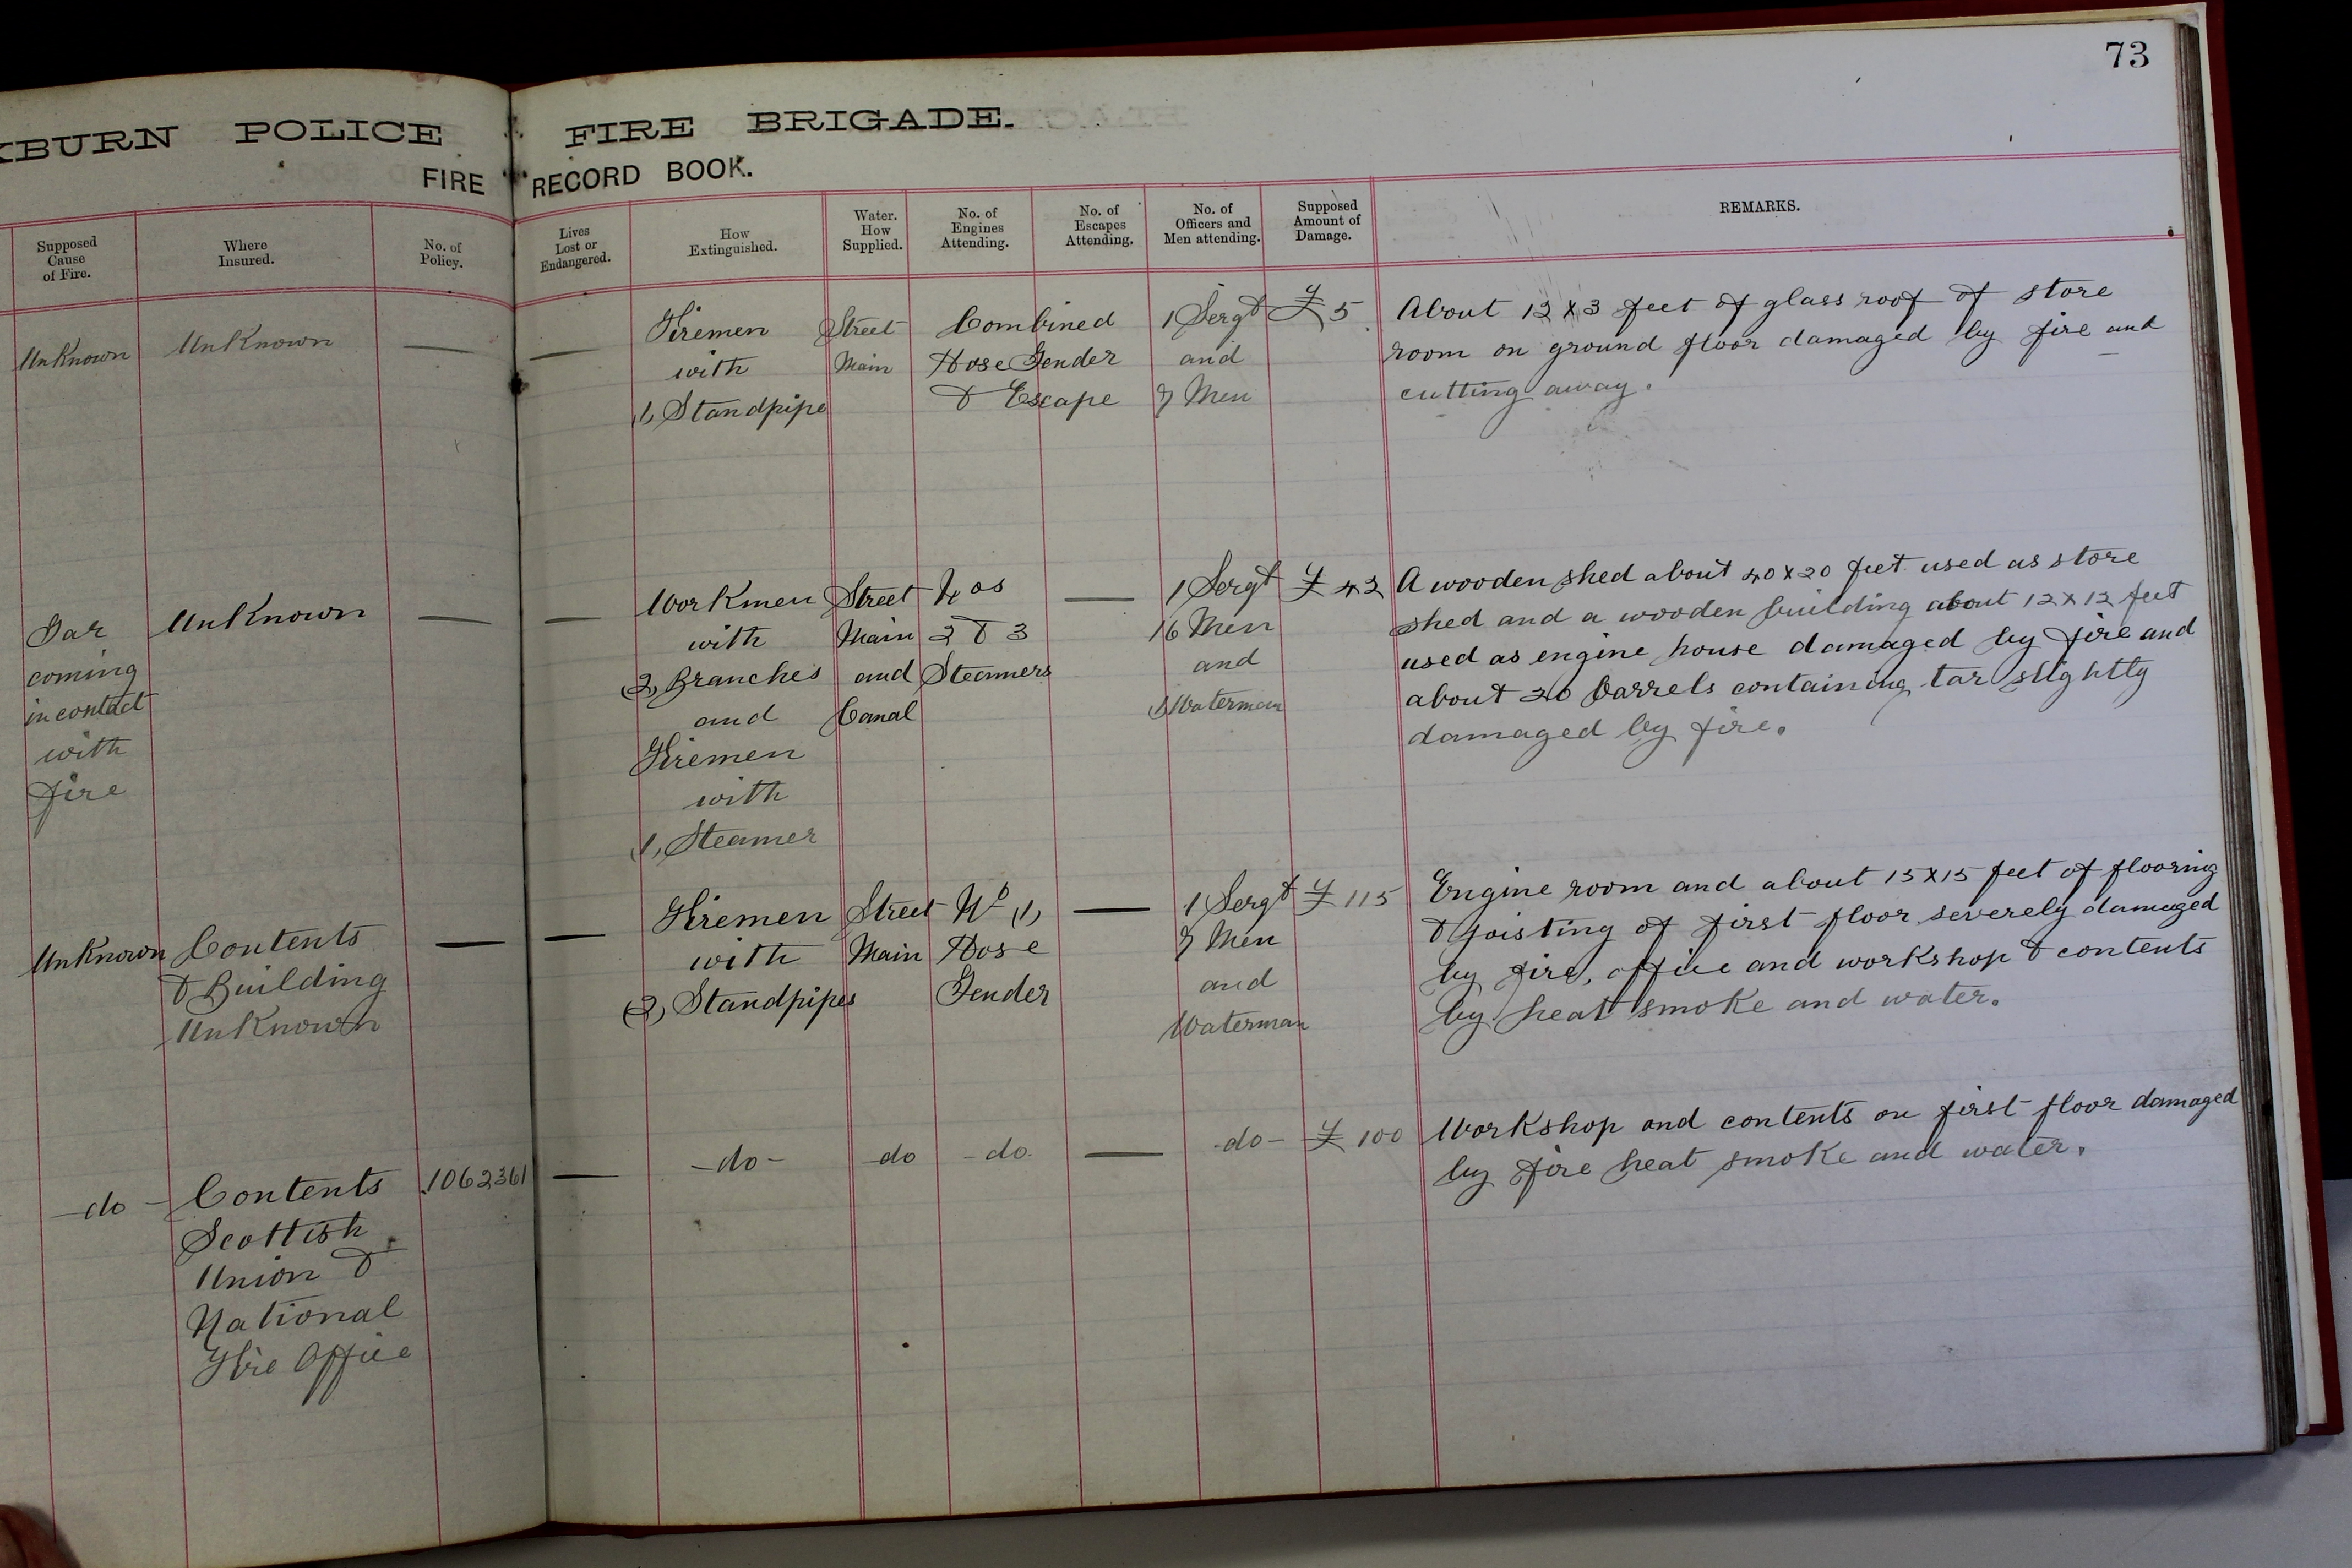 73
KBURN POLICE FIRE BRIGADE.
FIRE RECORD BOOK.
Supposed Cause of Fire.
Where Insured.
No. of Policy.
Lives Lost or Endangered.
How Extinguished.
Water. How Supplied.
No. of Engines Attending.
No. of Escapes Attending.
No. of Officers and Men attending.
Supposed Amount of Damage.
REMARKS.
Unknown
Unknown
—
—
Firemen
with
(1) Standpipe
Street
Main
Combined
Hose Tender
& Escape
1 Sergt
and
7 Men
£5
About 12 x 3 feet of glass roof of store
room on ground floor damaged by fire and
cutting away.
Tar
coming
in contact
with
fire
Unknown
—
—
Workmen
with
(2) Branches
and
Firemen
with
(1) Steamer
Street
Main
and
Canal
Nos
2 & 3
Steamers
—
1 Sergt
16 Men
and
(1) Waterman
£42
A wooden shed about 40 x 20 feet used as store
shed and a wooden building about 12 x 12 feet
used as engine house damaged by fire and
about 20 barrels containing tar slightly
damaged by fire.
Unknown
Contents
& Building
Unknown
—
—
Firemen
with
(2) Standpipes
Street
Main
No (1)
Hose
Tender
—
1 Sergt
7 Men
and
Waterman
£115
Engine room and about 15 x 15 feet of flooring
& joisting of first floor severely damaged
by fire, office and workshop & contents
by heat smoke and water.
-do-
Contents
Scottish
Union &
National
Fire Office
1062361
—
-do-
do
-do.
—
-do-
£100
Workshop and contents on first floor damaged
by fire heat smoke and water.